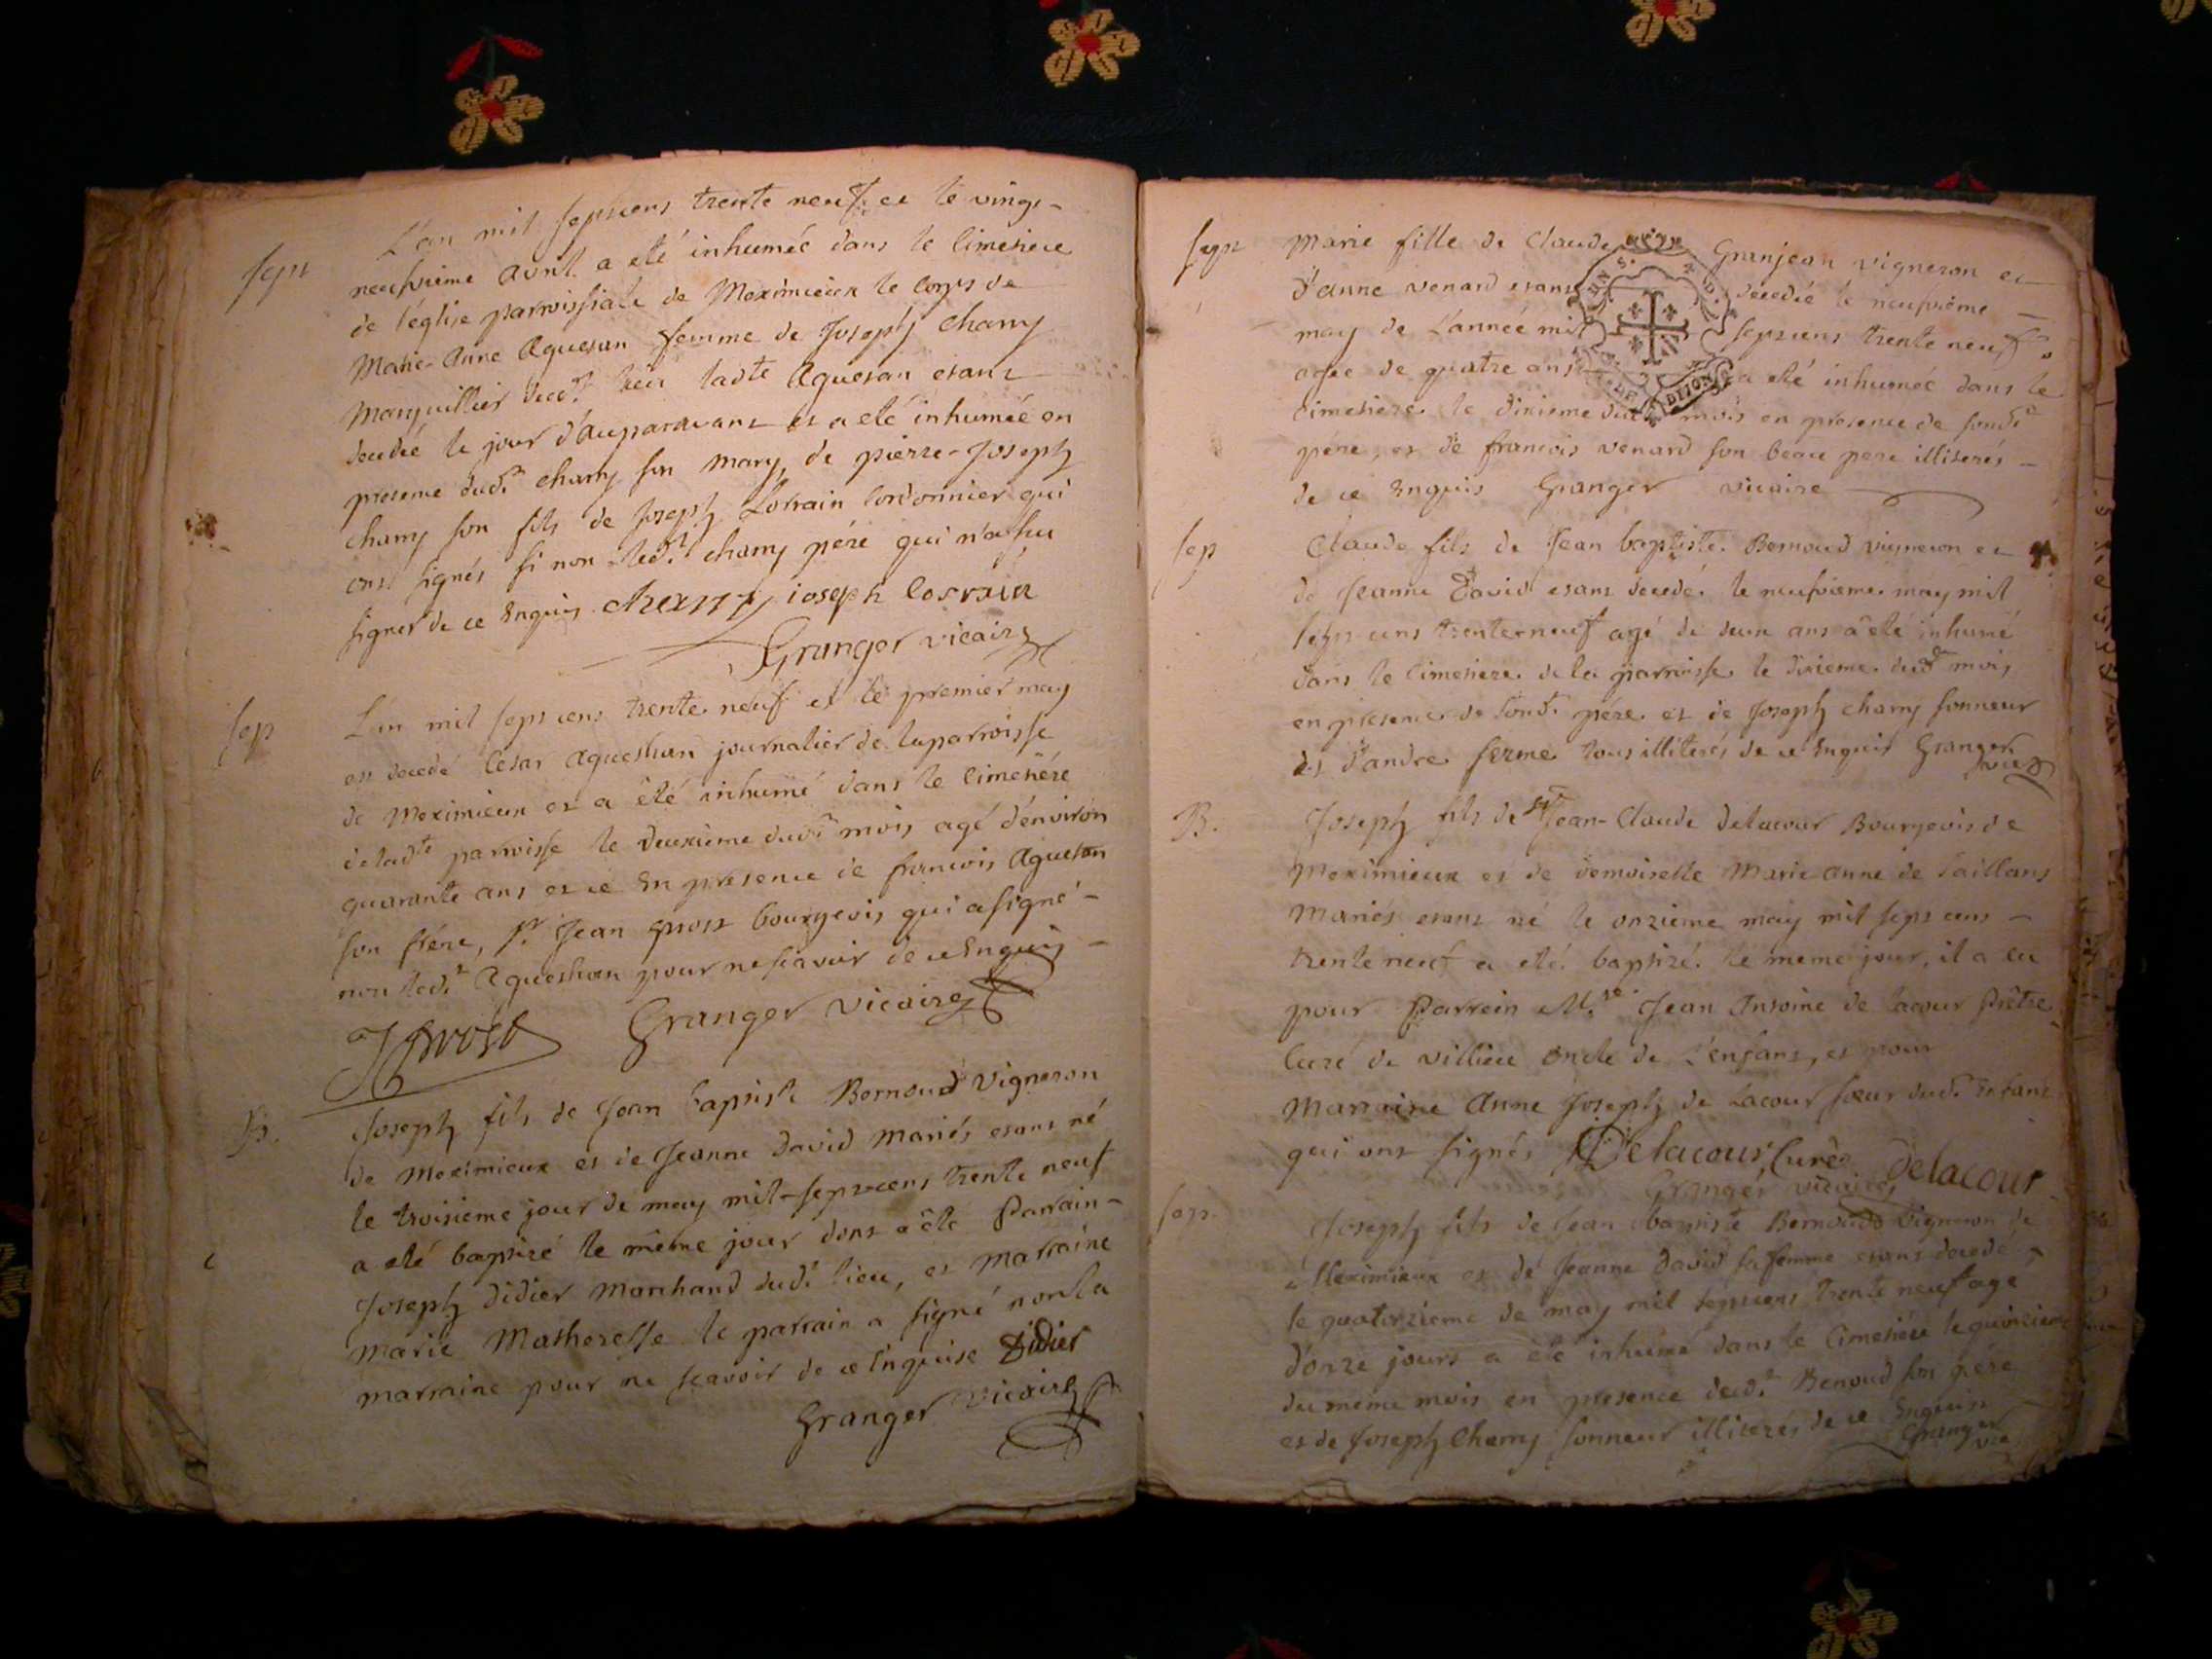 Sept
L'an mil septcens trente neuf et le vingt-
neufvieme avril a eté inhumée dans le cimetiere
de l'église parroissiale de Meximieux le corps de
Marie-Anne Aguetan femme de Joseph charny
Marguillier dud.t lieu ladte Aguetan etant
decedée le jour d'auparavant et a eté inhumée en
presence dud.t charny son mary, de pierre-Joseph
charny son fils de Joseph Lorrain cordonnier qui
ont signés si non led.t charny pére qui n'a sçu
signer de ce Enquis joseph lorrain
Granger vicaire
Sep
L'an mil sept cens trente neuf et le premier may
est decedé Cesar Aguethan journalier de la parroisse
de Meximieux et a été inhumé dans le cimetiére
de ladte parroisse le deuxieme dud.t mois agé d'environ
quarante ans et ce En presence de francois Aguetan
son frére, Sr. Jean prost bourgeois qui a signé-
non led.t Aguethan pour ne sçavoir de ce Enquis-
JProst Granger vicaire
B.
Joseph fils de Jean baptiste Bernoud Vigneron
de Meximieux et de Jeanne David Mariés etant né
le troisieme jour de may mil-septcens trente neuf
a eté baptizé le même jour dont a été Parrain-
Joseph didier Marchand dud.t lieu, et Marraine
marie Matheresse le parrain a signé non la
marraine pour ne sçavoir de ce Enquise Didier
Granger vicaire
Sept
Marie fille de Claude Granjean vigneron et
d'anne venard etant decedée le neufvième-
may de L'année mil septcens trente neuf
agée de quatre ans a eté inhumée dans le
cimetiere le dixieme dud mois en presence de sond.t
pére, et de francois venard son beau pere illiterés-
de ce Enquis Granger vicaire
DIJON
Sep
Claude fils de Jean baptiste Bernoud vigneron et
de Jeanne David etant decedé le neufvieme may mil
sept cens trente neuf agé de deux ans a eté inhumé
dans le cimetiere de la parroisse le dixieme dud mois
en presence de sond. pére et de Joseph charny sonneur
et d'andre ferme tous illiterés de ce Enquis Granger
vice
B.
Joseph fils de Sr Jean-Claude delacour Bourgeois de
Meximieux et de demoiselle Marie anne de Saillans
Mariés etant né le onzieme may mil sept cens-
trente neuf a eté baptizé le meme jour, il a eu
pour Parrein M.re Jean Antoine de lacour Prêtre
Curé de villieu oncle de L'enfant, et pour
Marraine Anne Joseph de Lacour sœur dud. Enfant
qui ont signés Delacour, Curé Delacour
Granger vicaire
Sep.
Joseph fils de Jean baptiste Bernoud vigneron de
Meximieux et de Jeanne David sa femme etant decedé
le quatorzieme de may mil septcens trente neuf agé
d'onze jours a été inhumé dans le cimetiére le quinzieme
du même mois en presence dud.t Benoud son pére
et de Joseph Charny sonneur illiterés de ce Enquis
Granger
vice